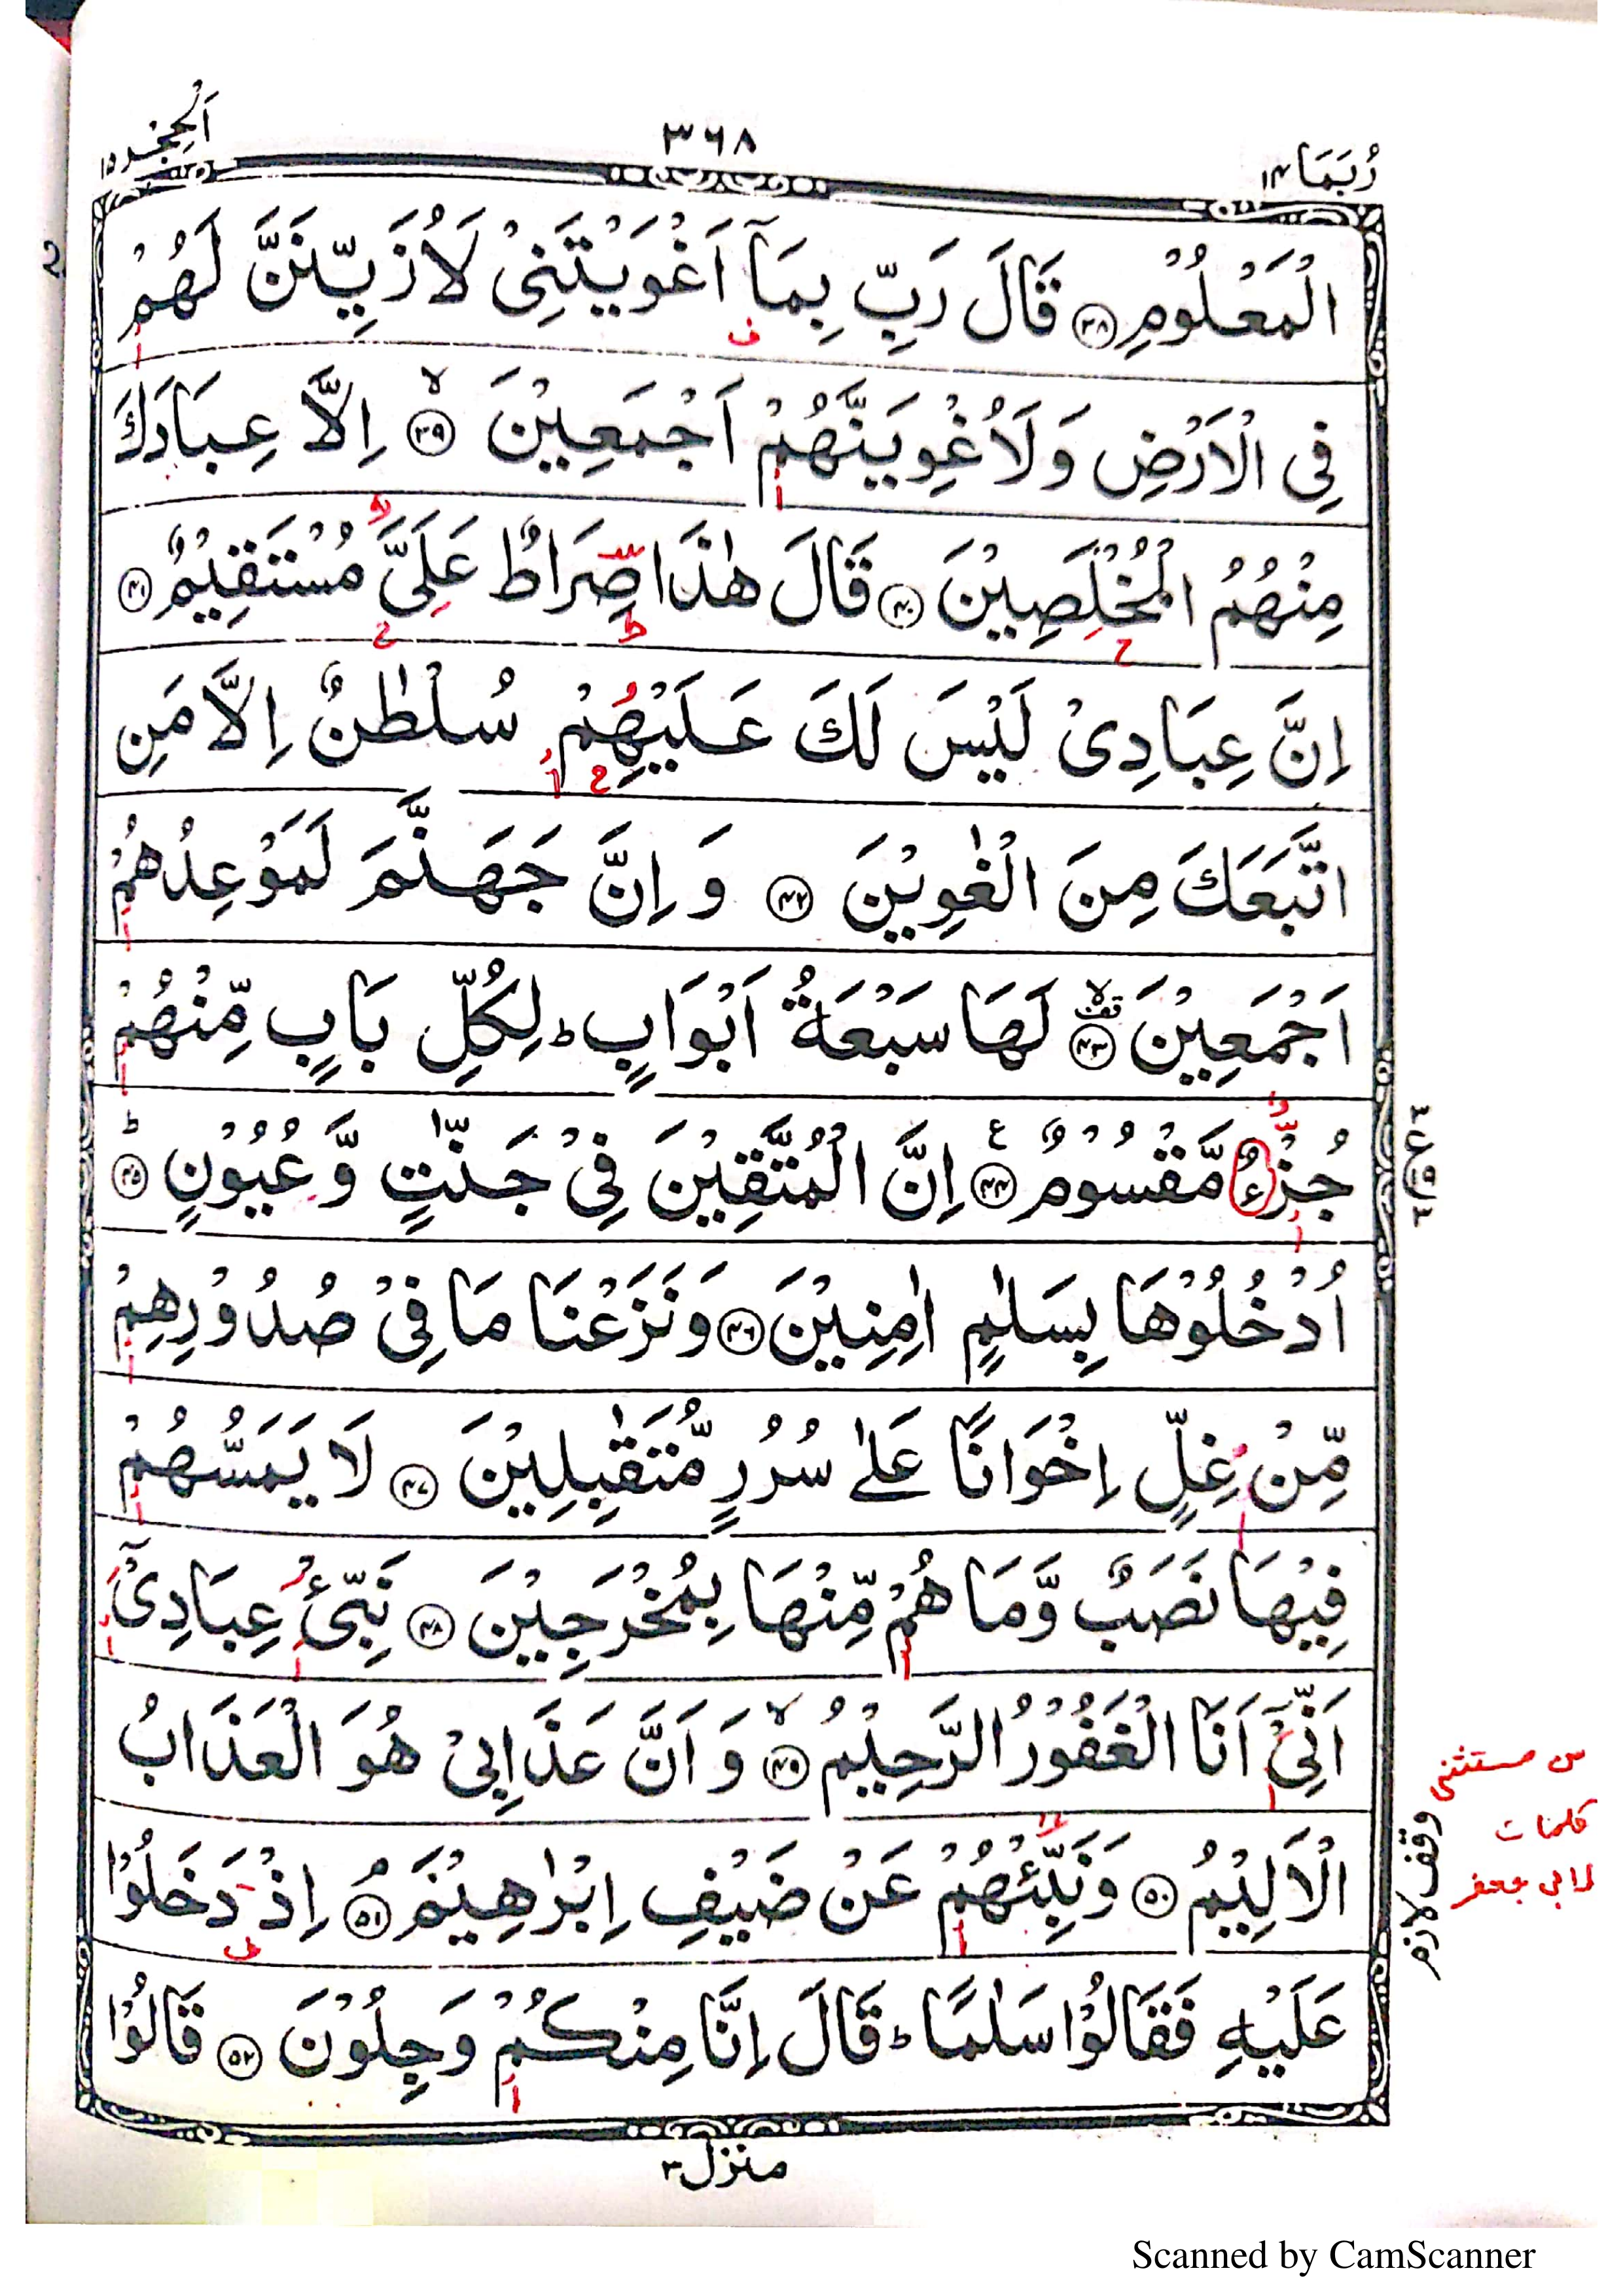 رُبَمَا ١٤
٣٦٨
اَلْحِجْر ١٥
2
الْمَعْلُوْمِ ﴿٣٨﴾ قَالَ رَبِّ بِمَآ اَغْوَيْتَنِيْ لَاُزَيِّنَنَّ لَهُمْ
فِي الْاَرْضِ وَلَاُغْوِيَنَّهُمْ اَجْمَعِيْنَ ۙ﴿٣٩﴾ اِلَّا عِبَادَكَ
مِنْهُمُ الْمُخْلَصِيْنَ ﴿٤٠﴾ قَالَ هٰذَا صِرَاطٌ عَلَيَّ مُسْتَقِيْمٌ ﴿٤١﴾
اِنَّ عِبَادِيْ لَيْسَ لَكَ عَلَيْهِمْ سُلْطٰنٌ اِلَّا مَنِ
اتَّبَعَكَ مِنَ الْغٰوِيْنَ ﴿٤٢﴾ وَ اِنَّ جَهَنَّمَ لَمَوْعِدُهُمْ
اَجْمَعِيْنَ ۙ قف ﴿٤٣﴾ لَهَا سَبْعَةُ اَبْوَابٍ ؕ لِكُلِّ بَابٍ مِّنْهُمْ
جُزْءٌ مَّقْسُوْمٌ ﴿٤٤﴾ ع اِنَّ الْمُتَّقِيْنَ فِيْ جَنّٰتٍ وَّ عُيُوْنٍ ؕ﴿٤٥﴾
اُدْخُلُوْهَا بِسَلٰمٍ اٰمِنِيْنَ ﴿٤٦﴾ وَنَزَعْنَا مَا فِيْ صُدُوْرِهِمْ
مِّنْ غِلٍّ اِخْوَانًا عَلٰى سُرُرٍ مُّتَقٰبِلِيْنَ ﴿٤٧﴾ لَا يَمَسُّهُمْ
فِيْهَا نَصَبٌ وَّمَا هُمْ مِّنْهَا بِمُخْرَجِيْنَ ﴿٤٨﴾ نَبِّئْ عِبَادِيْٓ
اَنِّيْٓ اَنَا الْغَفُوْرُ الرَّحِيْمُ ۙ﴿٤٩﴾ وَ اَنَّ عَذَابِيْ هُوَ الْعَذَابُ
الْاَلِيْمُ ﴿٥٠﴾ وَنَبِّئْهُمْ عَنْ ضَيْفِ اِبْرٰهِيْمَ ۘ﴿٥١﴾ اِذْ دَخَلُوْا
عَلَيْهِ فَقَالُوْا سَلٰمًا ؕ قَالَ اِنَّا مِنْكُمْ وَجِلُوْنَ ﴿٥٢﴾ قَالُوْا
مستثنى
كلمات
لابی جعفر
وقف لازم
منزل ٣
Scanned by CamScanner